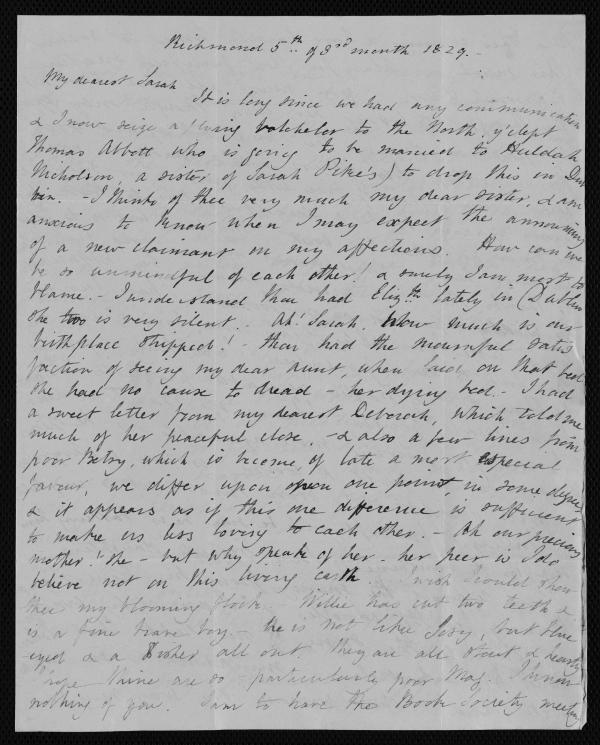 Richmond 5th of 3rd month 1829.-
My dearest Sarah
It is long since we had any communication
& I now seize a living batchelor to the North, y'clept
Thomas Abbott who is going to be married to Huldah
Nicholson, a sister of Sarah Pike's) to drop this in Dub
lin. - I think of thee very much my dear sister, & am
anxious to know when I may expect the announcing
of a new claimant on my affections. How can we
be so unmindful of each other! & surely I am most to
blame. - I understand thou had Elizth lately in Dublin
she too is very silent. Ah! Sarah, how much is our
birthplace stripped! - thou had the mournful satis
faction of seeing my dear aunt, when laid on that bed
she had no cause to dread - her dying bed. - I had
a sweet letter from my dearest Deborah, which told me
much of her peaceful close, - & also a few lines from
poor Betsy, which is become, of late a most especial
favour, we differ upon one point, in some degree
& it appears as if this one difference is sufficient
to make us less loving to each other. - Ah our precious
mother! She - but why speak of her - her peer is I do
believe not on this living earth. I wish I could show
thee my blooming flock. Willie has cut two teeth &
is a fine brave boy - he is not like Josy, but blue
eyed & a Fisher all out they are all stout & hearty
I hope thine are so - particularly poor Mag. I know
nothing of you. I am to have the Book Society meeting